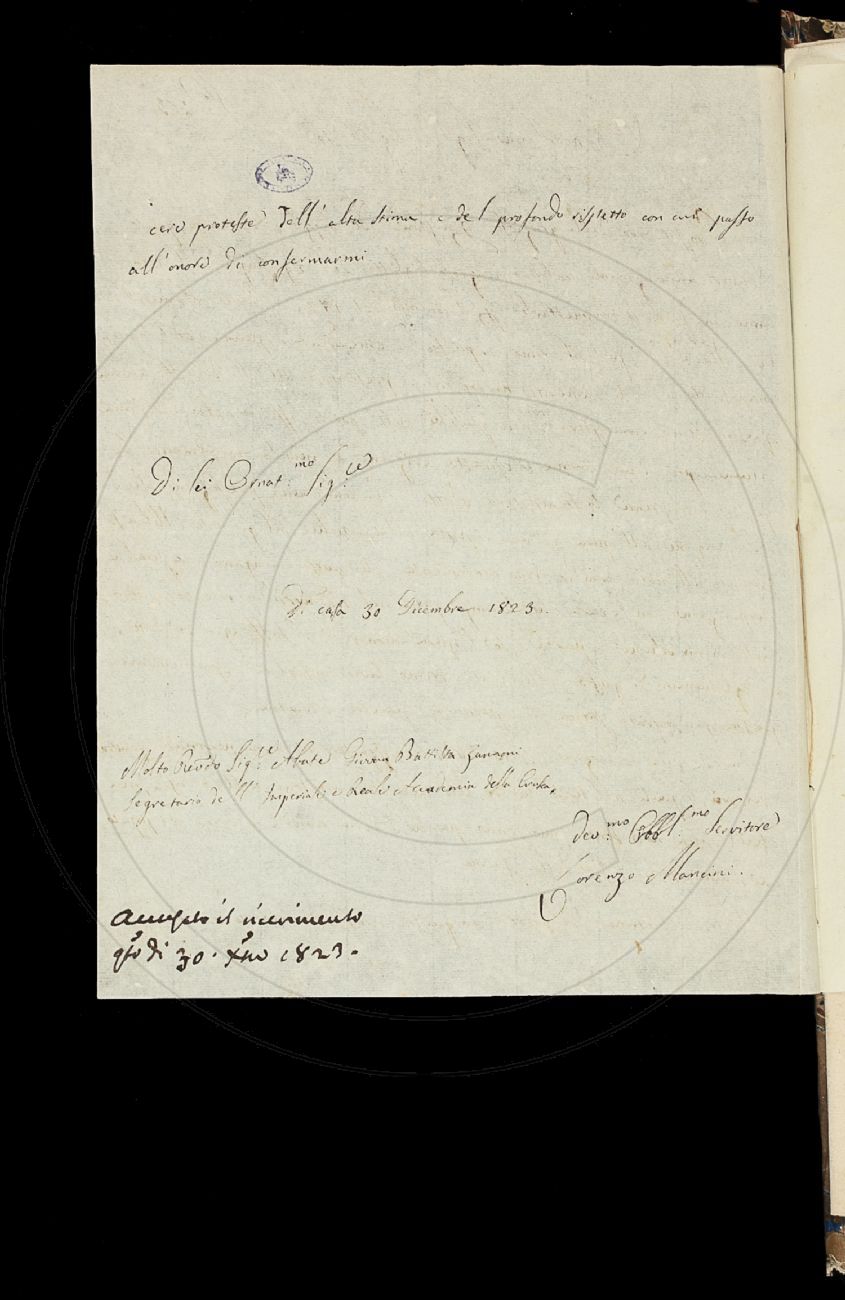 cere proteste dell' alta stima e del profondo rispetto con cui passo
all' onore di confermarmi
Di lei Ornat.mo Sig.re
Di casa 30 Dicembre 1823.
Molto Revdo Sig.re Abate Giovan Batista Zannoni
Segretario dell' Imperiale e Reale Accademia della Crusca.
Dev.mo Obbl.mo Servitore
Lorenzo Mancini.
Accusato il ricevimento
qsto dì 30. Xbre 1823.